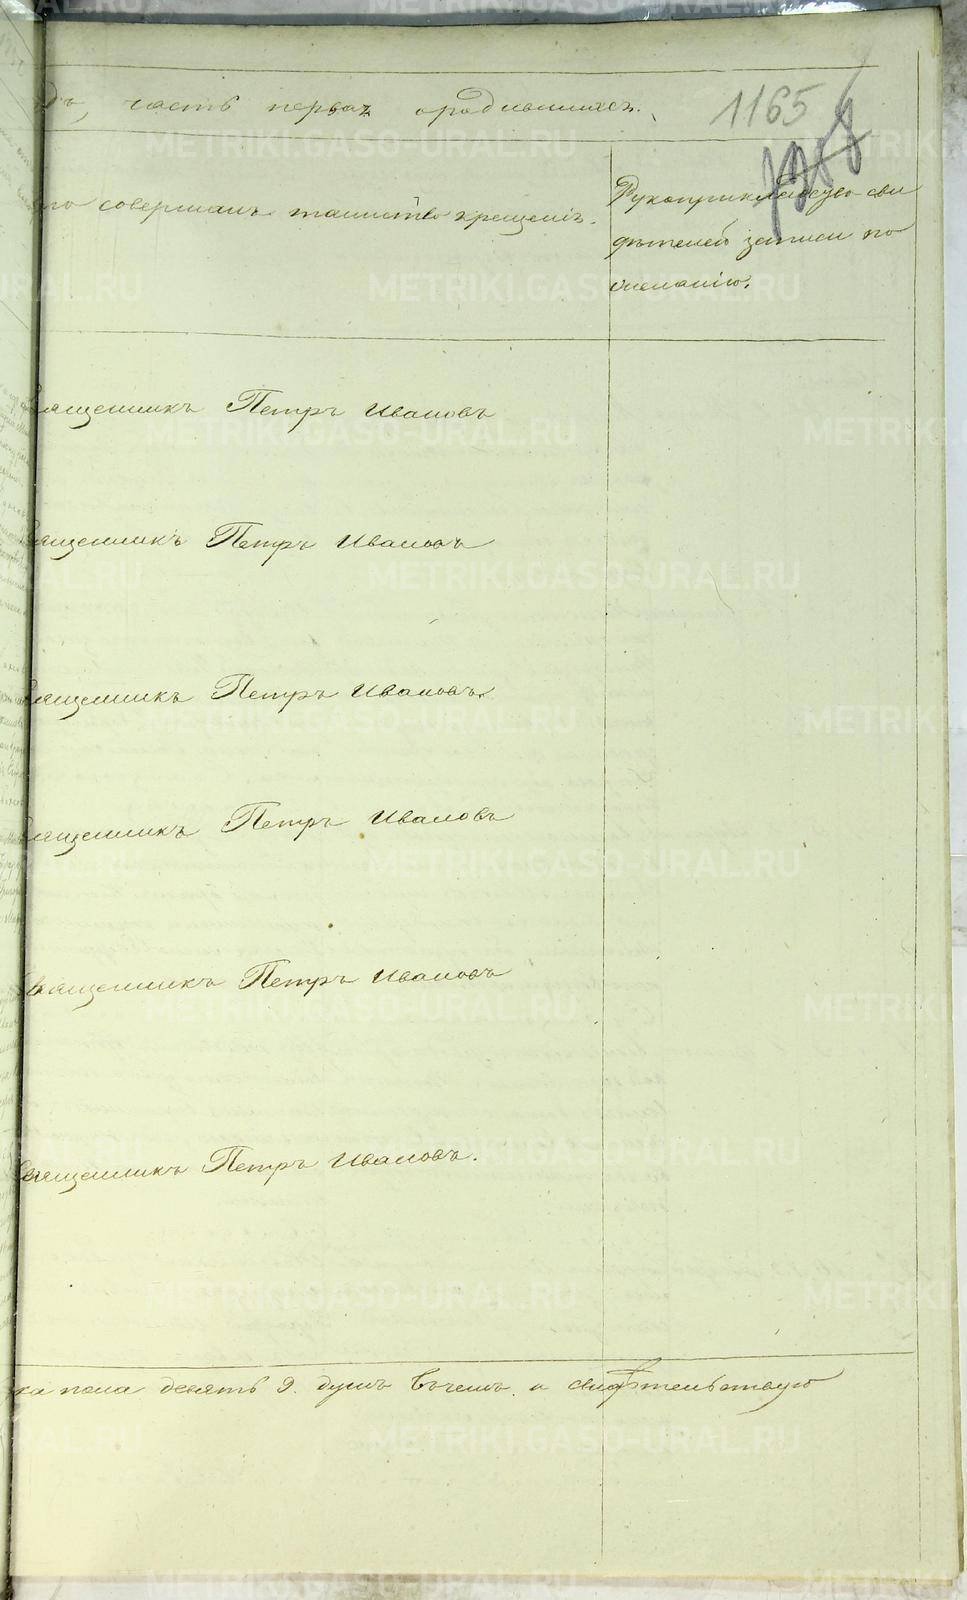 дъ, часть первая ородившихся.
1165
то совершалъ таинство крещенія.
Рукоприкладсво сви
дѣтелей записи по
желанію.
вященникъ Петръ Ивановъ
вященникъ Петръ Ивановъ
вященникъ Петръ Ивановъ.
вященникъ Петръ Ивановъ
вященникъ Петръ Ивановъ
Священникъ Петръ Ивановъ.
ка пола девять 9. душъ Въчемъ и свидѣтельствую
METRIKI.GASO-URAL.RU